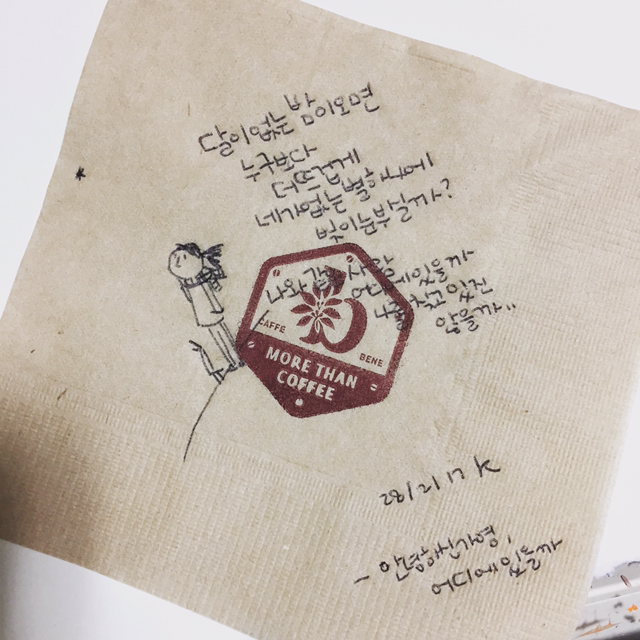 달이없는 밤이오면
누구보다
더뜨겁게
네가없는 별하나에
빛이눈부실까?
나와 같은 사람 어디에있을까
나를 찾고 있진
않을까"
CAFFE BENE
MORE THAN
COFFEE
28/2/17 K
- 안녕하신가영,
어디에있을까